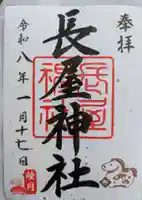 奉拝
長屋神社
令和八年一月十七日
睦月